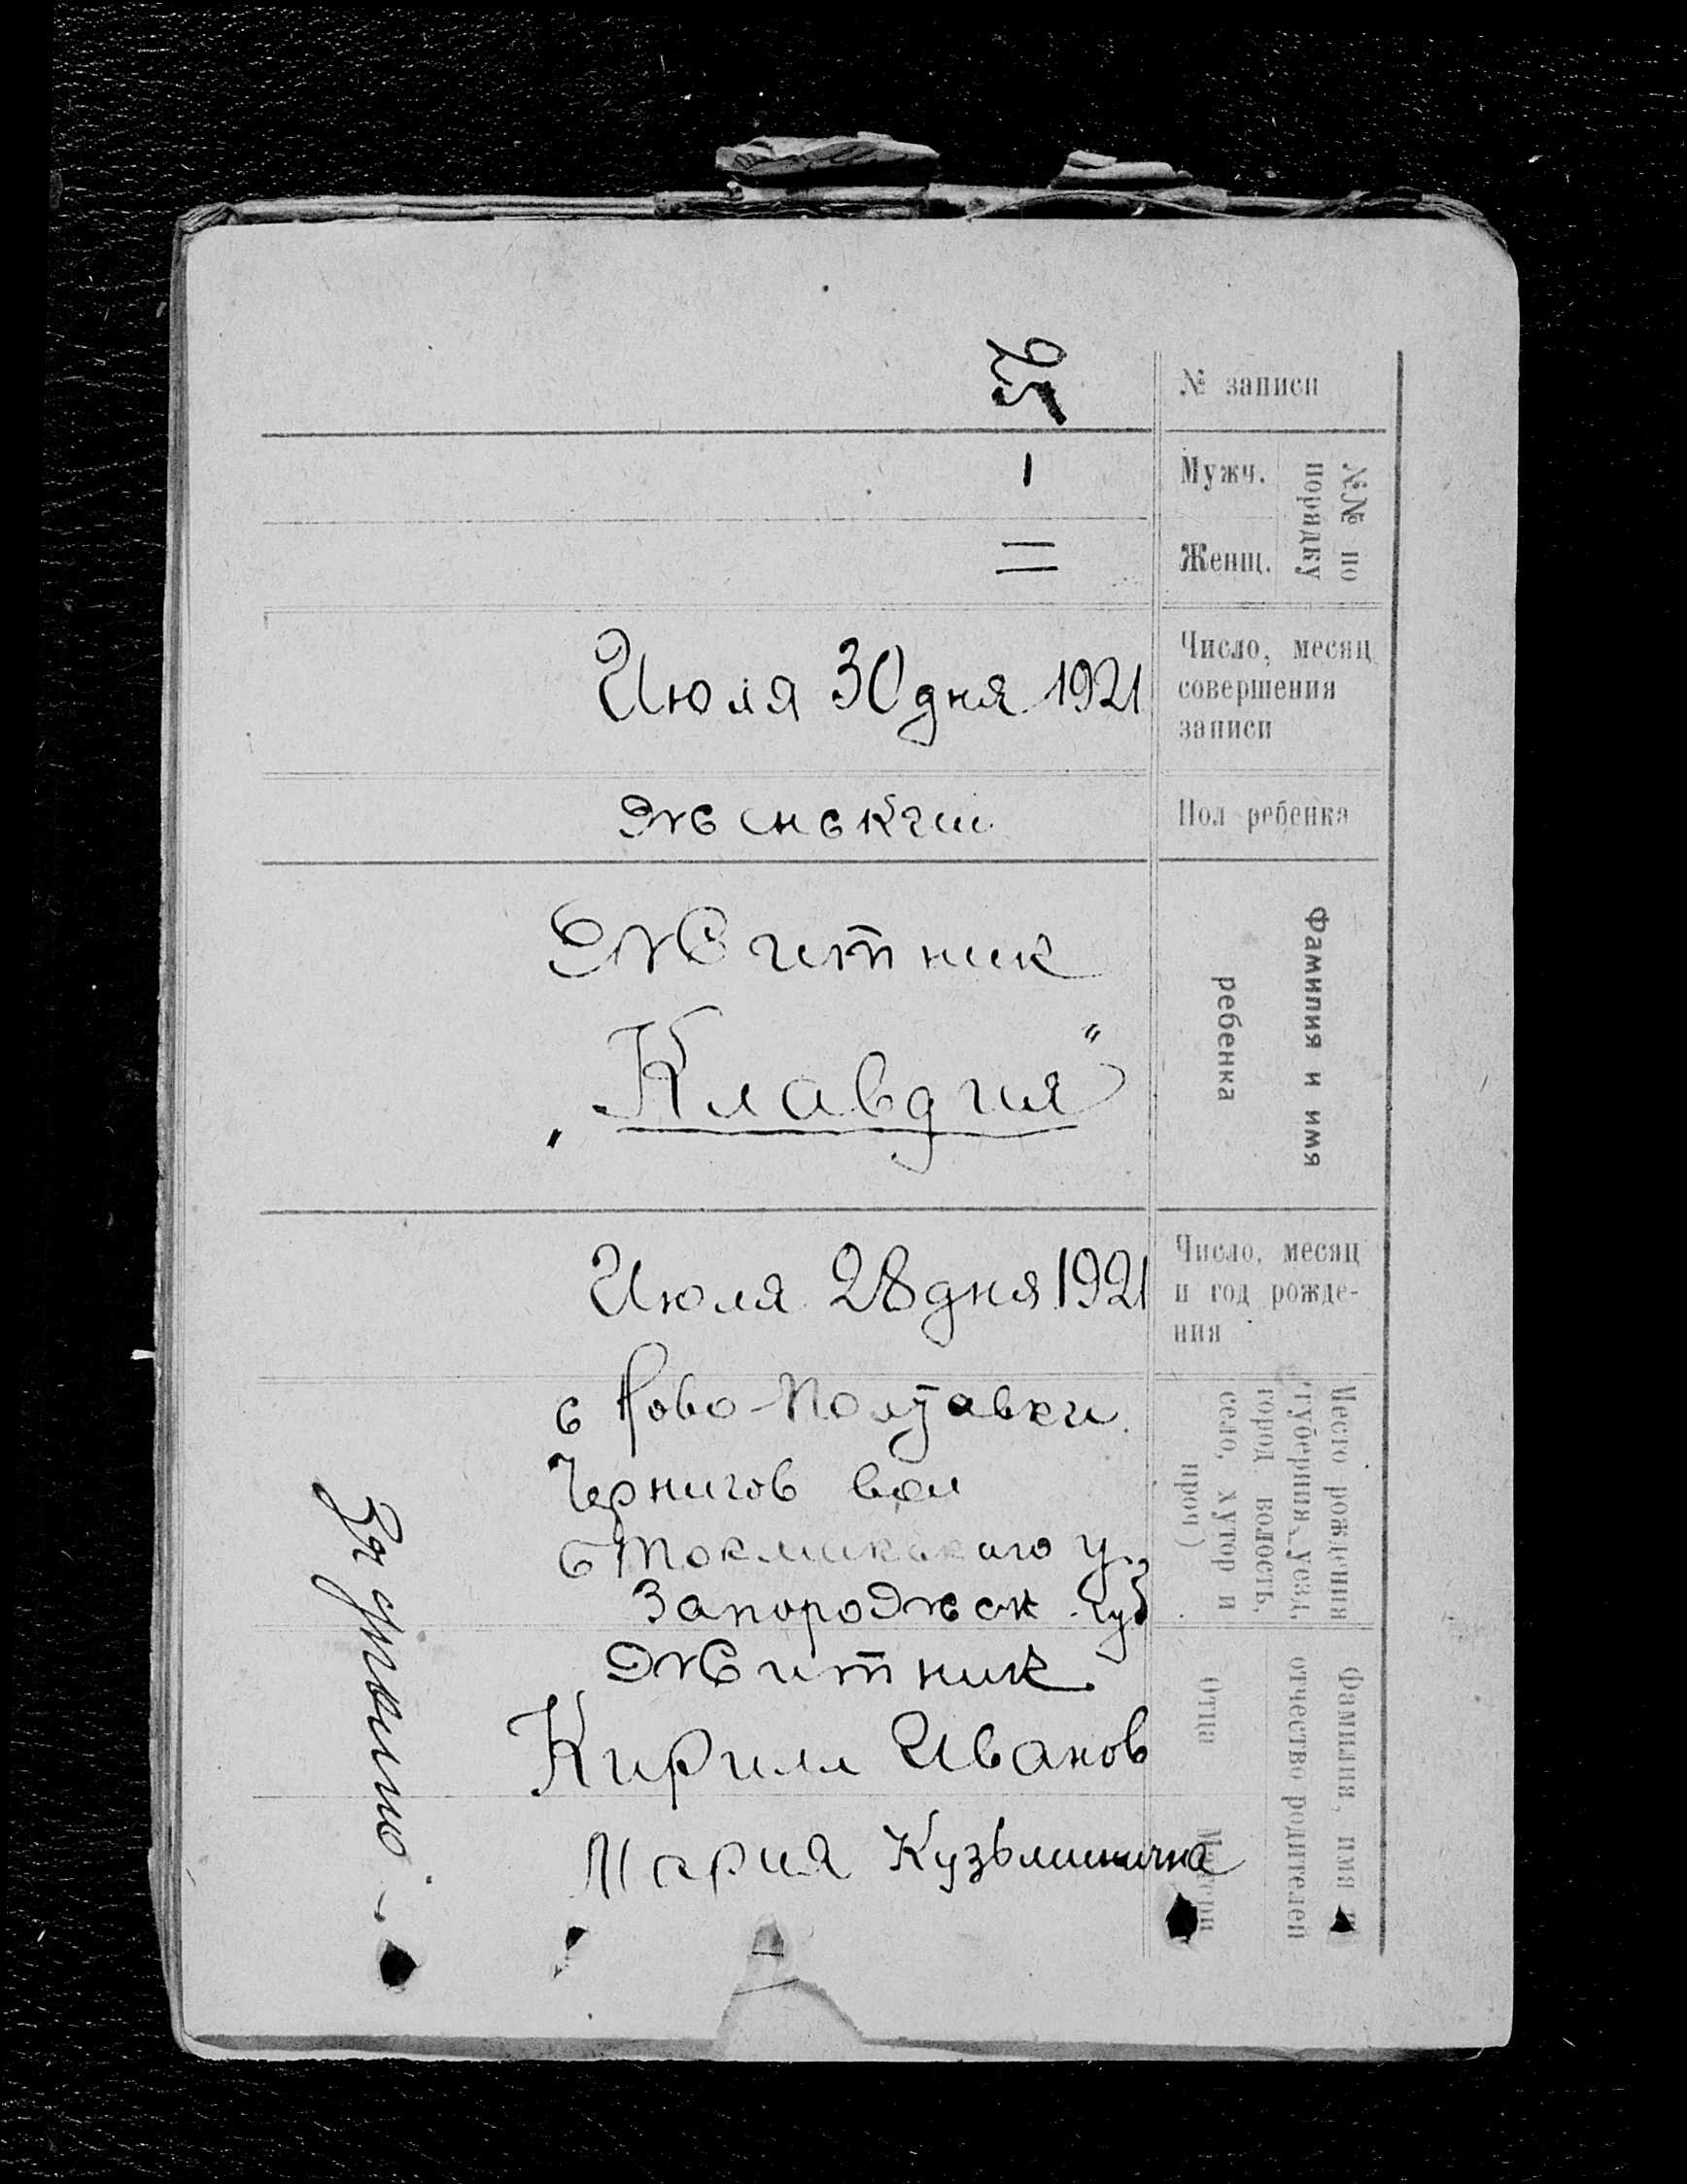 № записи
25
№№ по
порядку
Мужч.
Женщ.
Число, месяц
совершения
записи
Июля 30 дня 1921
Пол ребенка
Женский
Фамилия и имя
ребенка
Житник
„Клавдия"
Число, месяц
и год рожде-
ния
Июля 28 дня 1921
Место рождения
(губерния, уезд,
город волость,
село, хутор и
проч)
с Ново-Полтавки
Чернигов вол
Б Токмакского у.
Запорожск. Губ
Фамилия, имя и
отчество родителей
Отца
Житник
Кирилл Иванов
Матери
Мария Кузьминична
За